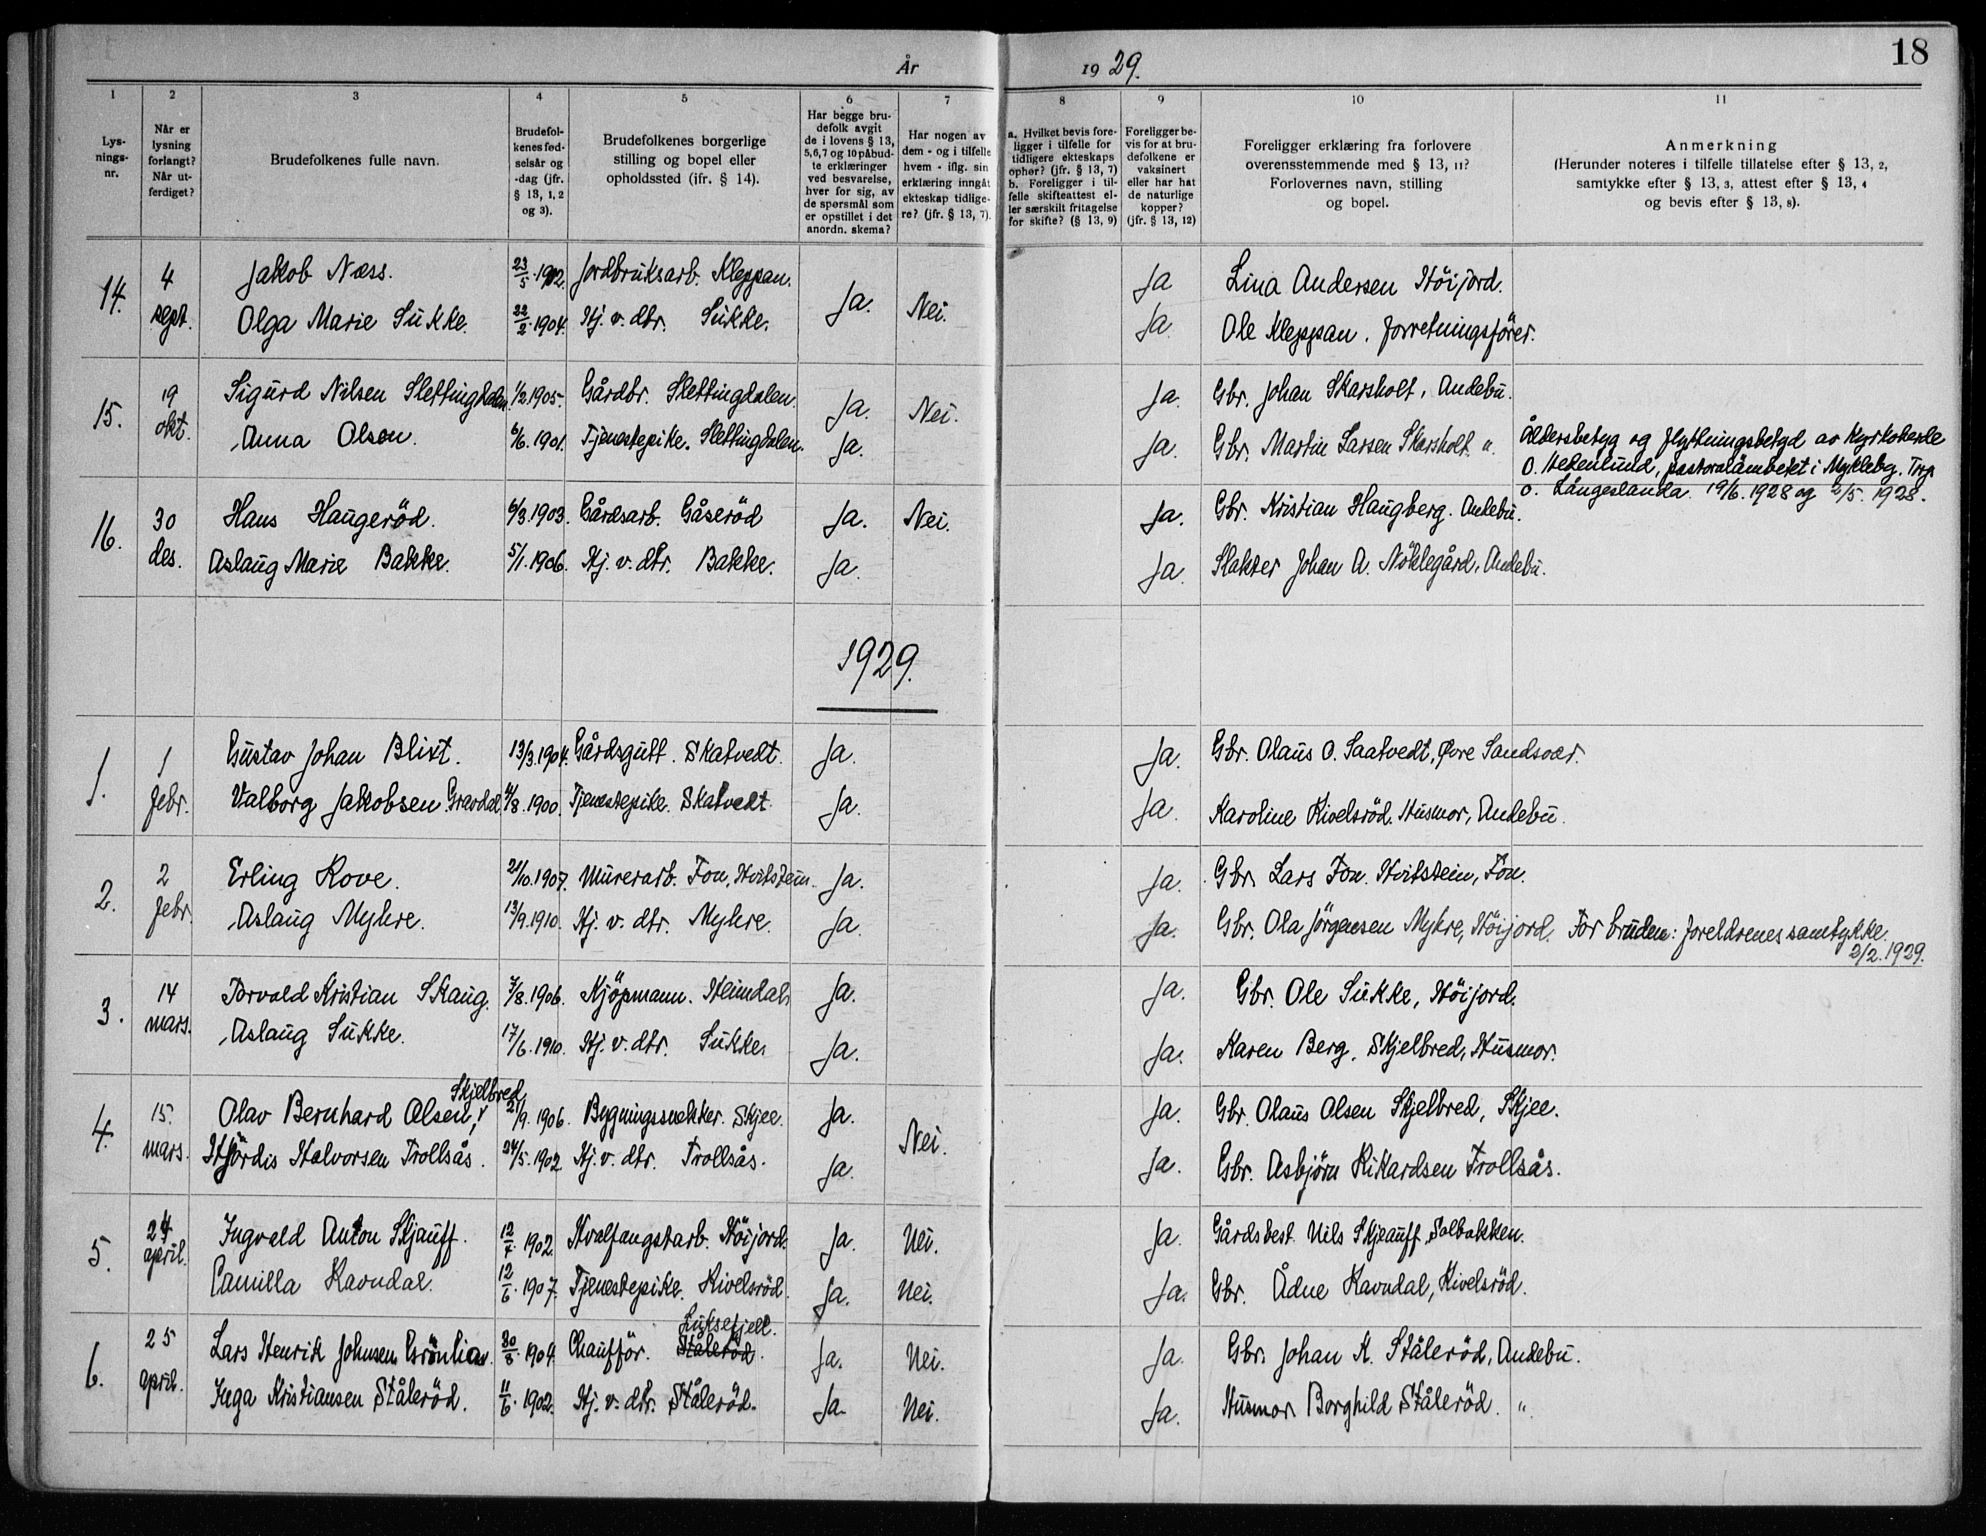 År 1929.
18
1 2 3 4 5 6 7 8 9 10 11
Lys-
nings-
nr.
Når er
lysning
forlangt?
Når ut-
ferdiget?
Brudefolkenes fulle navn.
Brudefol-
kenes fød-
selsår og
-dag (jfr.
§ 13, 1, 2
og 3).
Brudefolkenes borgerlige
stilling og bopel eller
opholdssted (ifr. § 14).
Har begge bru-
defolk avgit
de i lovens § 13,
5,6,7 og 10 påbud-
te erklæringer
ved besvarelse,
hver for sig, av
de spørsmål som
er opstillet i det
anordn. skema?
Har nogen av
dem - og i tilfelle
hvem - iflg. sin
erklæring inngåt
ekteskap tidlige-
re? (jfr. § 13, 7).
a. Hvilket bevis fore-
ligger i tilfelle for
tidligere ekteskaps
ophør? (jfr. § 13, 7)
b. Foreligger i til-
felle skifteattest el-
ler særskilt fritagelse
for skifte? (§ 13, 9)
Foreligger be-
vis for at bru-
defolkene er
vaksinert
eller har hat
de naturlige
kopper?
(jfr. § 13, 12)
Foreligger erklæring fra forlovere
overensstemmende med § 13, 11?
Forlovernes navn, stilling
og bopel.
Anmerkning
(Herunder noteres i tilfelle tillatelse efter § 13, 2,
samtykke efter § 13, 3, attest efter § 13, 4
og bevis efter § 13, 8).
14. 4 sept. Jakob Næss. 23/5.1902. Jordbruksarb. Kleppan. Ja. Nei. Ja Lina Andersen Höijord.
Olga Marie Sukke. 22/2.1904. Hj. v. dtr. Sukke. Ja. Ole Kleppan. forretningsförer.
15. 19 okt. Sigurd Nilsen Slettingdalen 1/2.1905. Gårdbr. Slettingdalen. Ja. Nei. Ja. Gbr. Johan Skarsholt, Andebu.
Anna Olsen. 6/6.1901. Tjenestepike. Slettingdalen. Ja. Ja. Gbr. Martin Larsen Skarsholt. " Åldersbetyg og flyttningsbetyd av Kyrkoherde
O. Hedenlund, pastoralämbetet i Mykleby. Torp
o. Långeslanda. 19/6.1928 og 2/5. 1928.
16. 30 des. Hans Haugeröd. 6/3.1903. Gårdsarb. Gåseröd Ja. Nei. Ja. Gbr. Kristian Haugberg. Andebu.
Aslaug Marie Bakke. 5/1.1906. Hj. v. dtr. Bakke. Ja. Ja. Slakter Johan A. Nöklegård, Andebu.
1929.
1. 1 febr. Gustav Johan Blixt. 13/3.1904. Gårdsgutt. Skatvedt. Ja. Ja. Gbr. Olaus O. Saatvedt, Øvre Sandsvær.
Valborg Jakobsen Gravdal. 4/8.1900. Tjenestepike. Skatvedt. Ja. Ja. Karoline Kivelsröd. Husmor, Andebu.
2. 2 febr. Erling Rove. 21/10.1907. Murerarb. Fon, Hvitstein. Ja. Ja. Gbr. Lars Fon. Hvitstein, Fon.
Aslaug Myhre. 13/9.1910. Hj. v. dtr. Myhre. Ja. Ja. Gbr. Ola Jörgensen Myhre, Höijord. For bruden: foreldrenes samtykke.
2/2.1929.
3. 14 mars. Torvald Kristian Skaug. 7/8.1906. Kjöpmann. Heimdal. Ja. Ja. Gbr. Ole Sukke, Höijord.
Aslaug Sukke. 17/6.1910. Hj. v. dtr. Sukke. Ja. Ja. Karen Berg. Skjelbred, Husmor.
Skjelbred
4. 15. mars. Olav Bernhard Olsen, 21/9.1906. Bygningssnekker. Skjee. Ja. Nei. Ja. Gbr. Olaus Olsen Skjelbred, Skjee.
Hjördis Halvorsen Trollsås. 24/5.1902 Hj. v. dtr. Trollsås. Ja. Ja. Gbr. Asbjörn Rikardsen Trollsås.
5. 24 april. Ingvald Anton Skjauff. 12/7.1902. Hvalfangstarb. Höijord. Ja. Nei. Ja. Gårdsbest. Nils Skjeauff, Solbakken.
Camilla Ravndal. 12/6.1907. Tjenestepike. Kivelsröd. Ja. Nei. Ja. Gbr. Ådne Ravndal, Kivelsröd.
Luksefjell.
6. 25 april. Lars Henrik Johnsen Grönlia. 30/8.1904. Chaufför. Ståleröd. Ja. Nei. Ja. Gbr. Johan K. Ståleröd, Andebu.
Inga Kristiansen Ståleröd. 11/6.1902. Hj. v. dtr. Ståleröd. Ja. Nei. Ja. Husmor Borghild Ståleröd. "